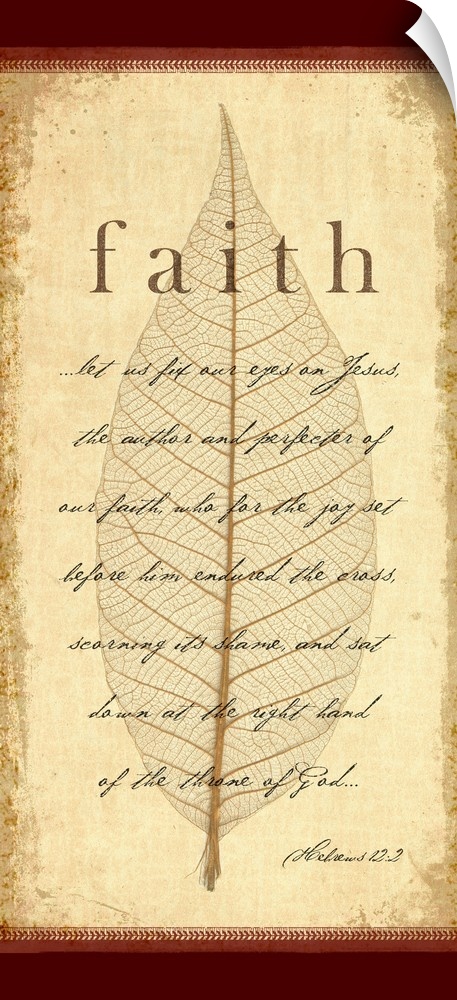 faith
...let us fix our eyes on Jesus,
the author and perfecter of
our faith, who for the joy set
before him endured the cross,
scorning its shame, and sat
down at the right hand
of the throne of God...
Hebrews 12:2